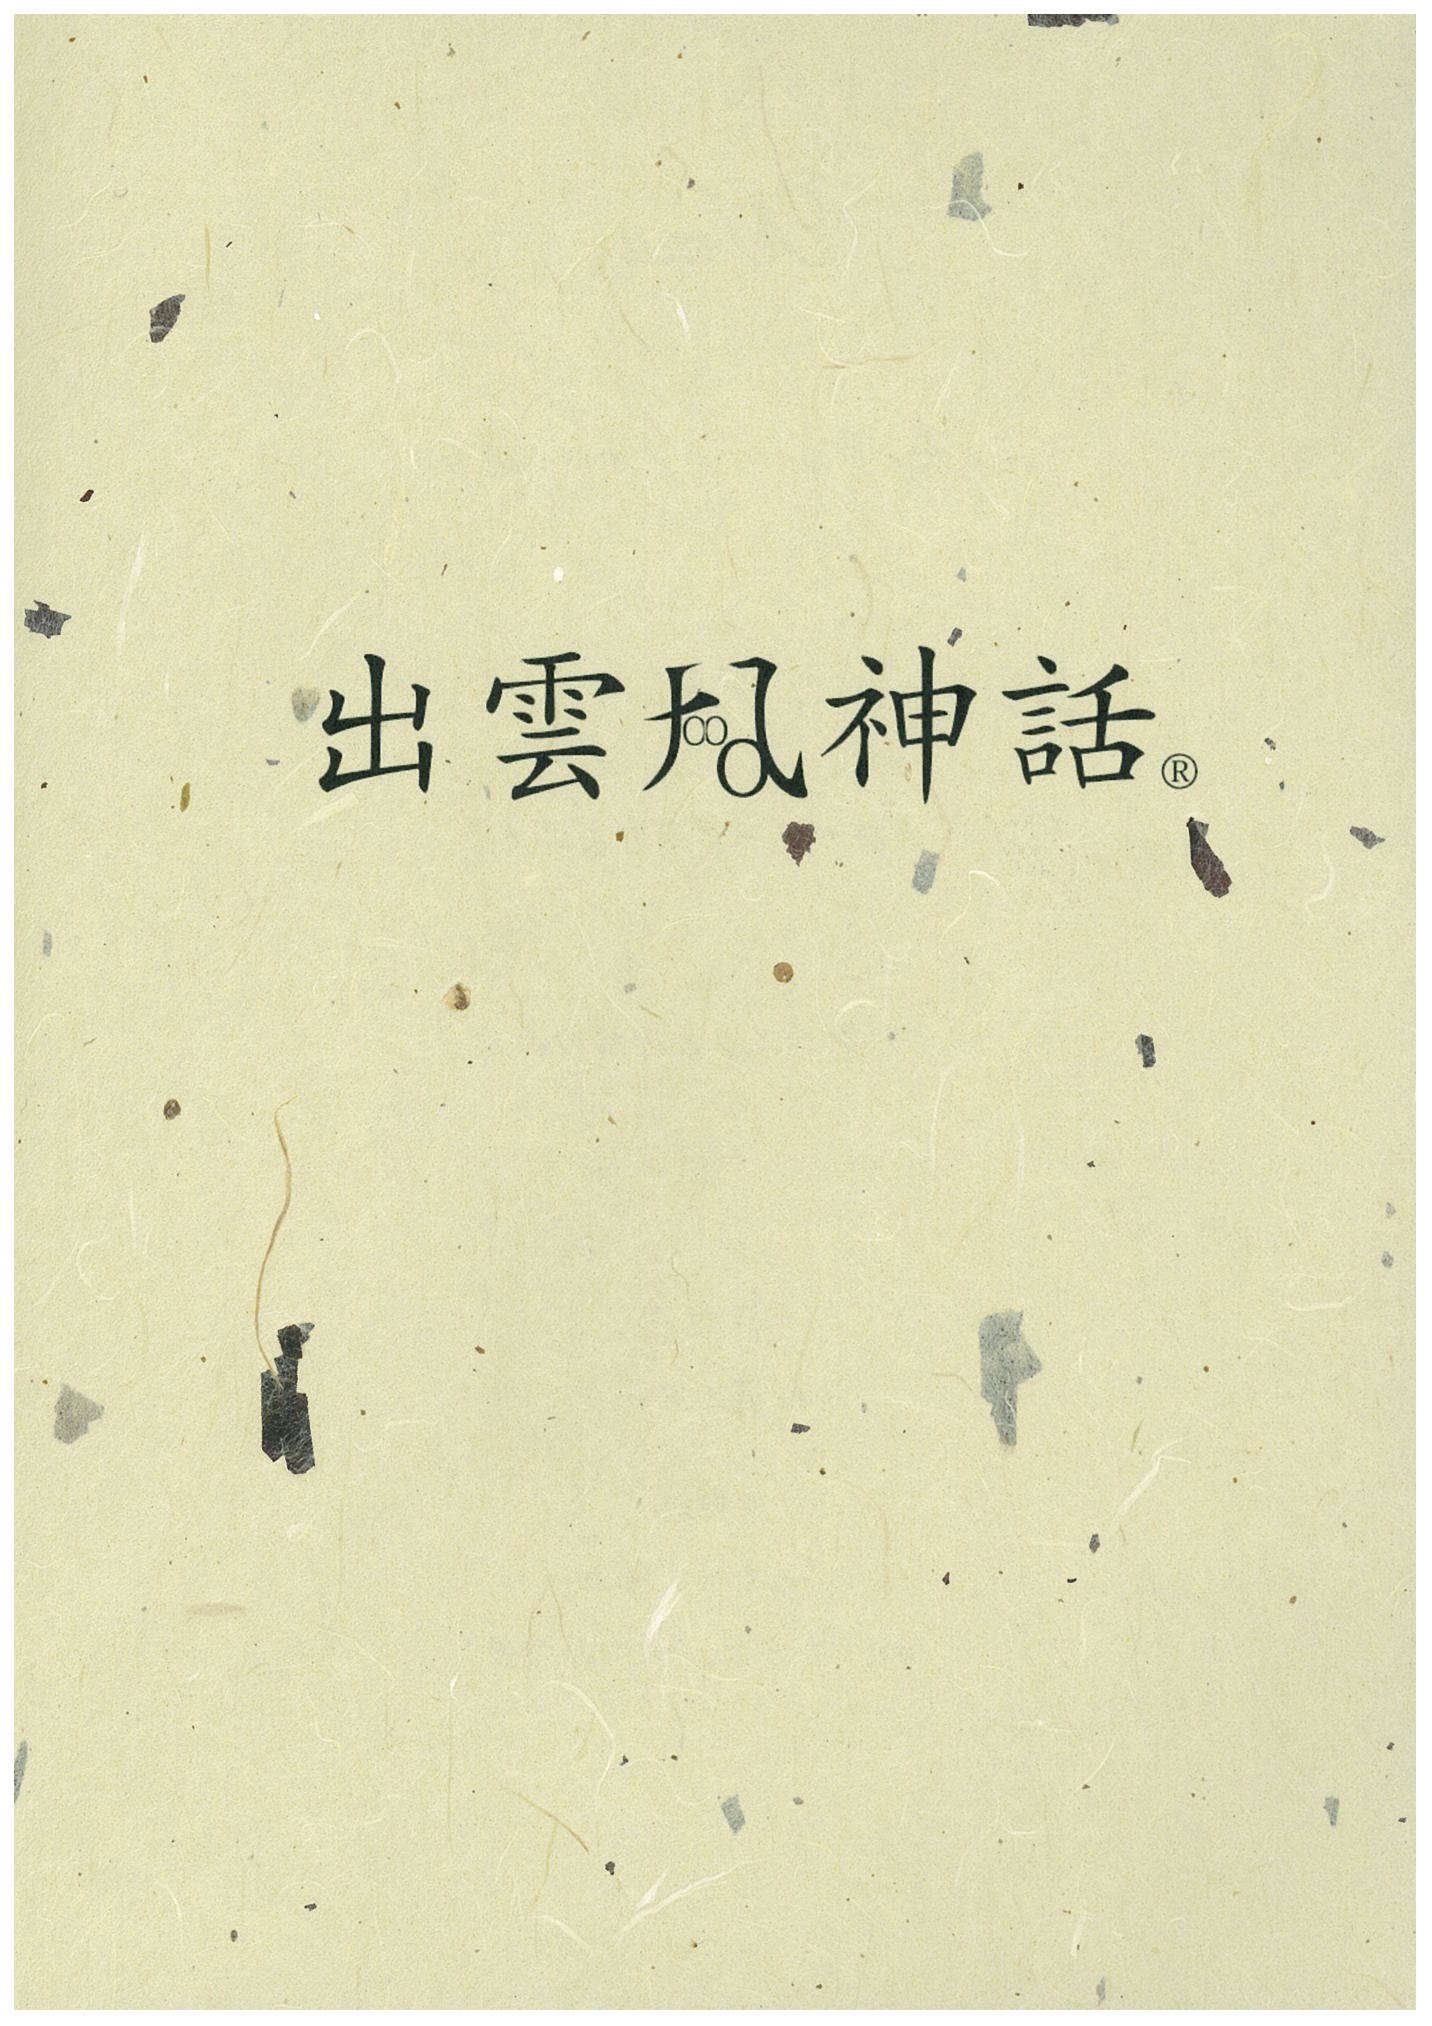 出雲風神話®